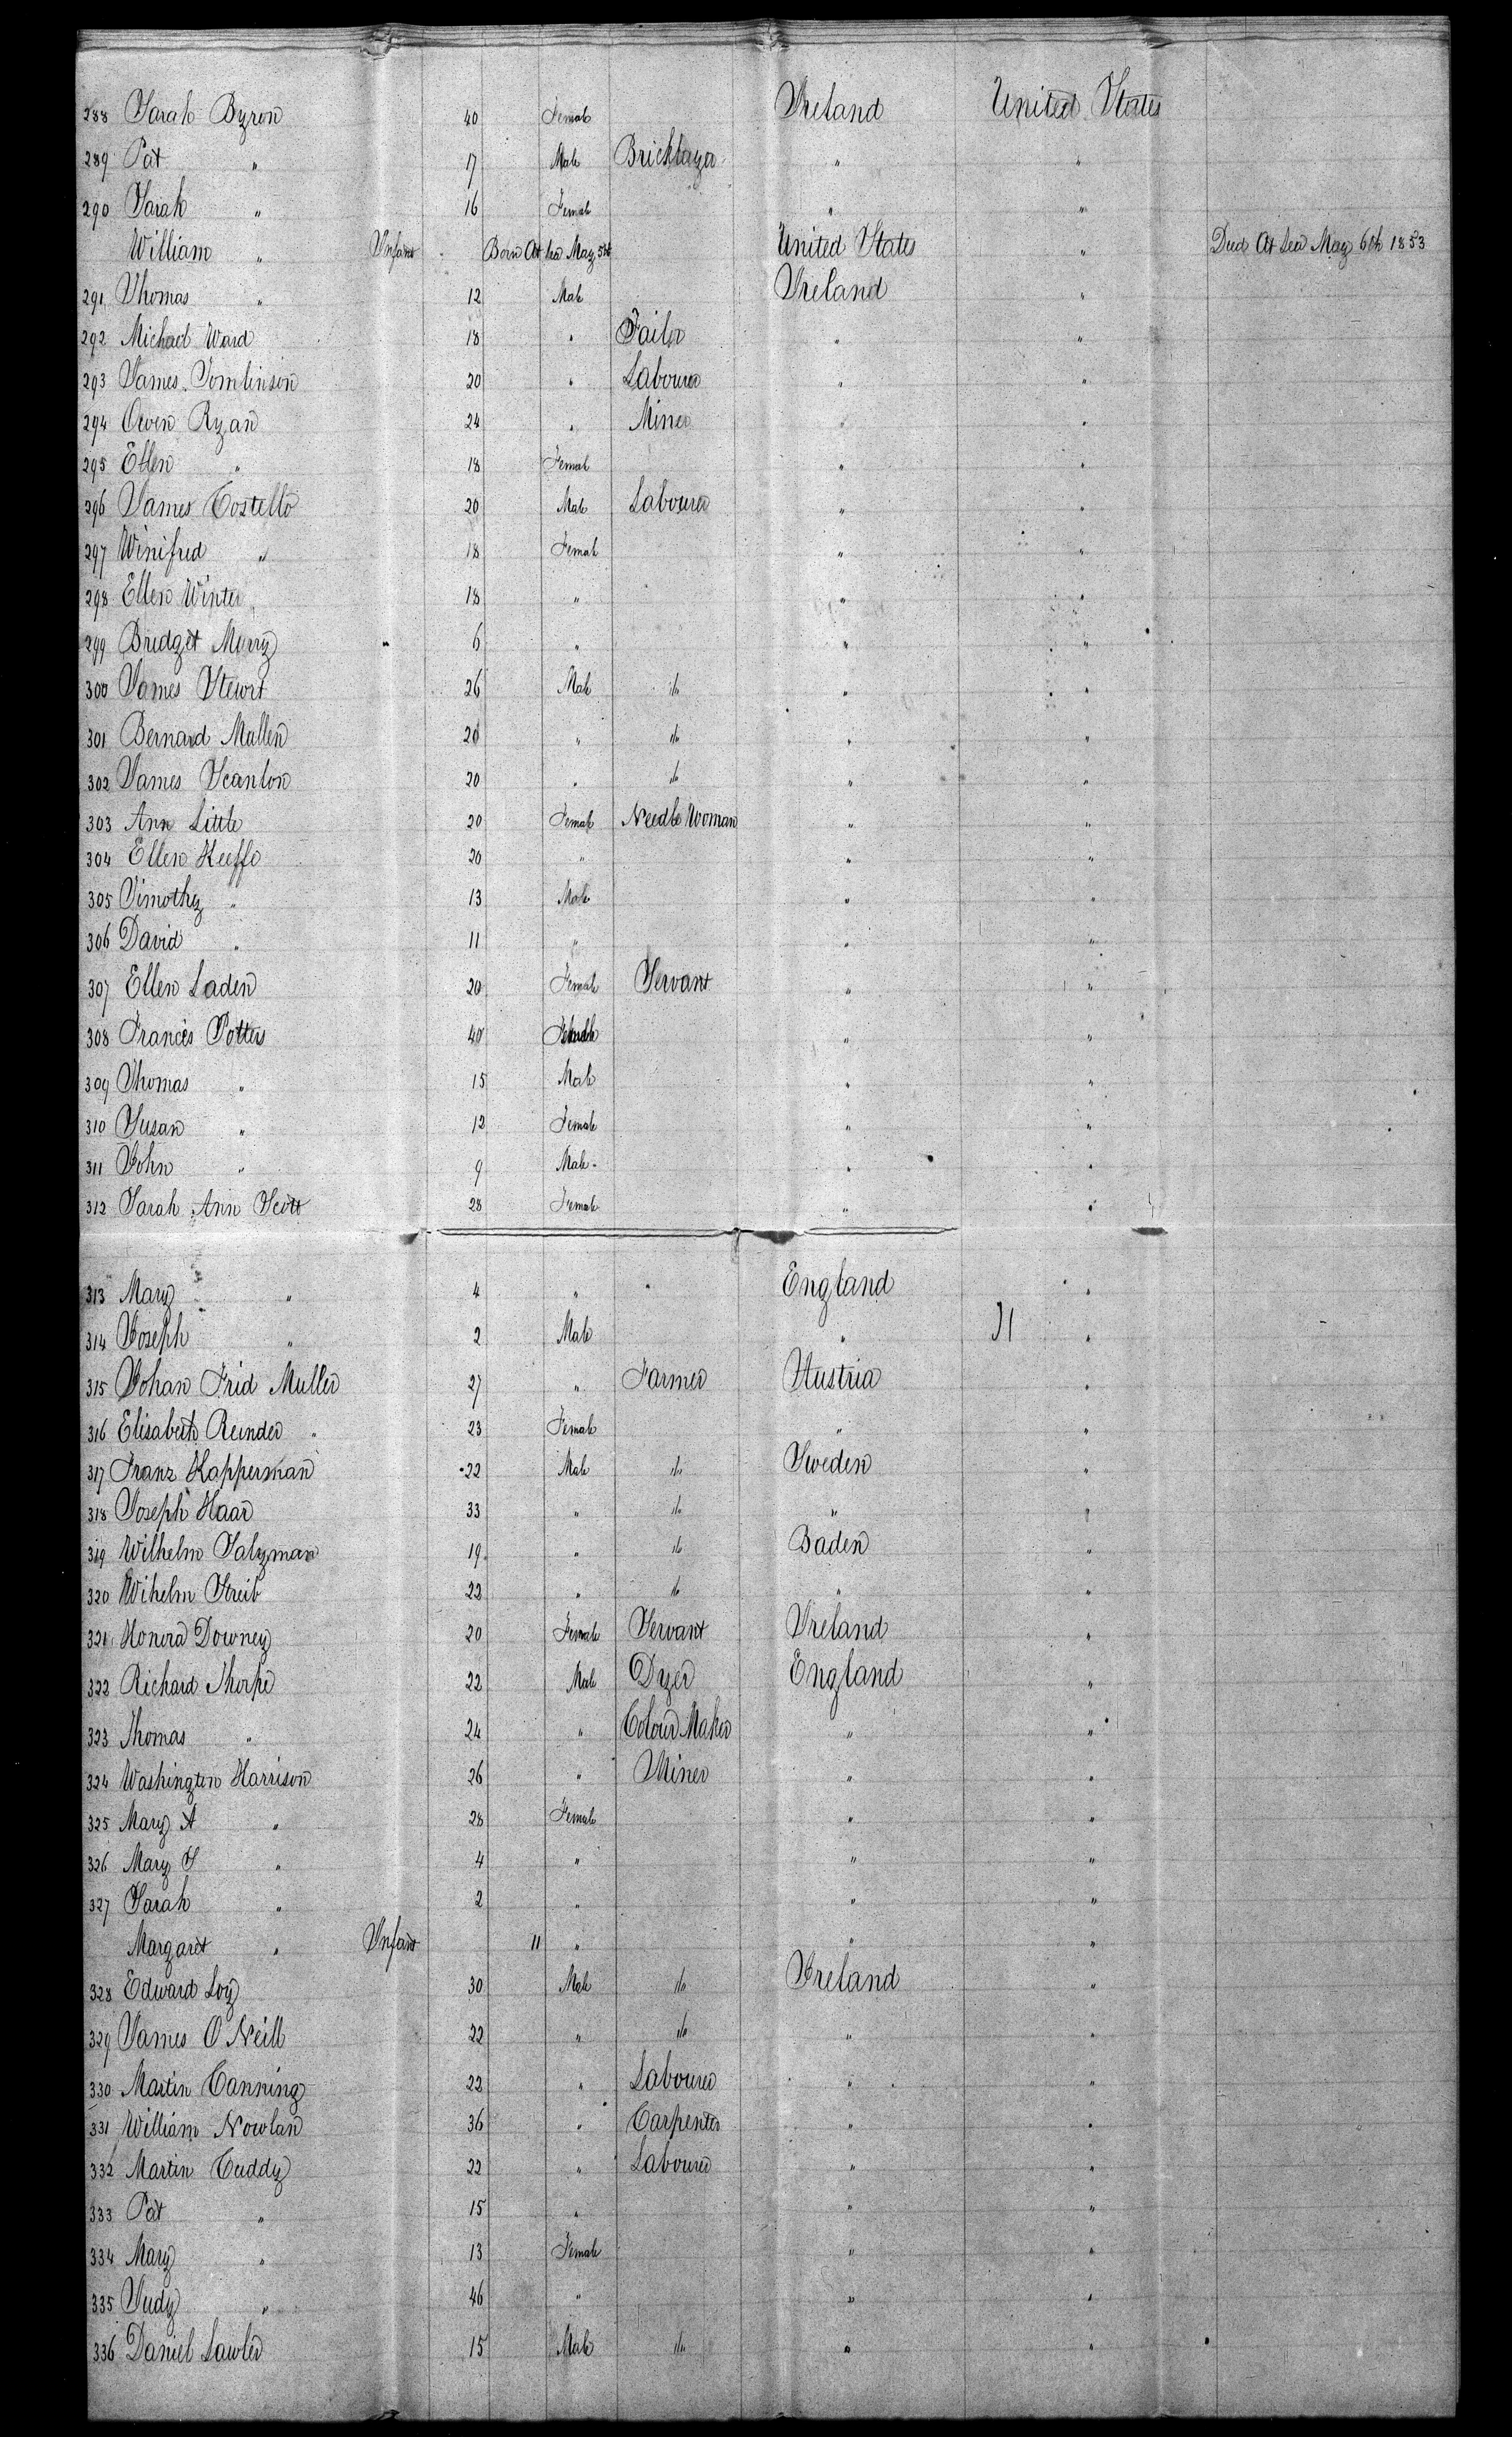 288 Sarah Byron 40 Female Ireland United States
289 Pat " 17 Male Bricklayer " "
290 Sarah " 16 Female " "
William " Infant Born At Sea May 5th United States " Died At Sea May 6th 1853
291 Thomas " 12 Male Ireland "
292 Michael Ward 18 " Tailor " "
293 James Tomlinson 20 " Labourer " "
294 Owen Ryan 24 " Miner " "
295 Ellen " 18 Female " "
296 James Costello 20 Male Labourer " "
297 Winifred " 18 Female " "
298 Ellen Winter 18 " " "
299 Bridget Merry 6 " " "
300 James Stewrt 26 Male do " "
301 Bernard Mullen 20 " do " "
302 James Scanlon 20 " do " "
303 Ann Little 20 Female Needle Woman " "
304 Ellen Keeffe 20 " " "
305 Timothy " 13 Male " "
306 David " 11 " " "
307 Ellen Laden 20 Female Servant " "
308 Francis Potters 40 " "
309 Thomas " 15 Male " "
310 Susan " 12 Female " "
311 John " 9 Male " "
312 Sarah Ann Scott 28 Female " "
313 Mary " 4 " England "
314 Joseph " 2 Male " "
315 Johan Frid Muller 27 " Farmer Austria "
316 Elisabeth Reinder " 23 Female " "
317 Franz Kapperman 22 Male do Sweden "
318 Joseph Haar 33 " do " "
319 Wilhelm Salzman 19 " do Baden "
320 Wihelm Streib 22 " do " "
321 Honora Downey 20 Female Servant Ireland "
322 Richard Thorpe 22 Male Dyer England "
323 Thomas " 24 " Colour Maker " "
324 Washington Harrison 26 " Miner " "
325 Mary A " 28 Female " "
326 Mary S " 4 " " "
327 Sarah " 2 " " "
Margaret " Infant 11 " " "
328 Edward Loy 30 Male do Ireland "
329 James O Neill 22 " do " "
330 Martin Canning 22 " Labourer " "
331 William Nowlan 36 " Carpenter " "
332 Martin Cuddy 22 " Labourer " "
333 Pat " 15 " " "
334 Mary " 13 Female " "
335 Judy " 46 " " "
336 Daniel Lawler 15 Male do " "